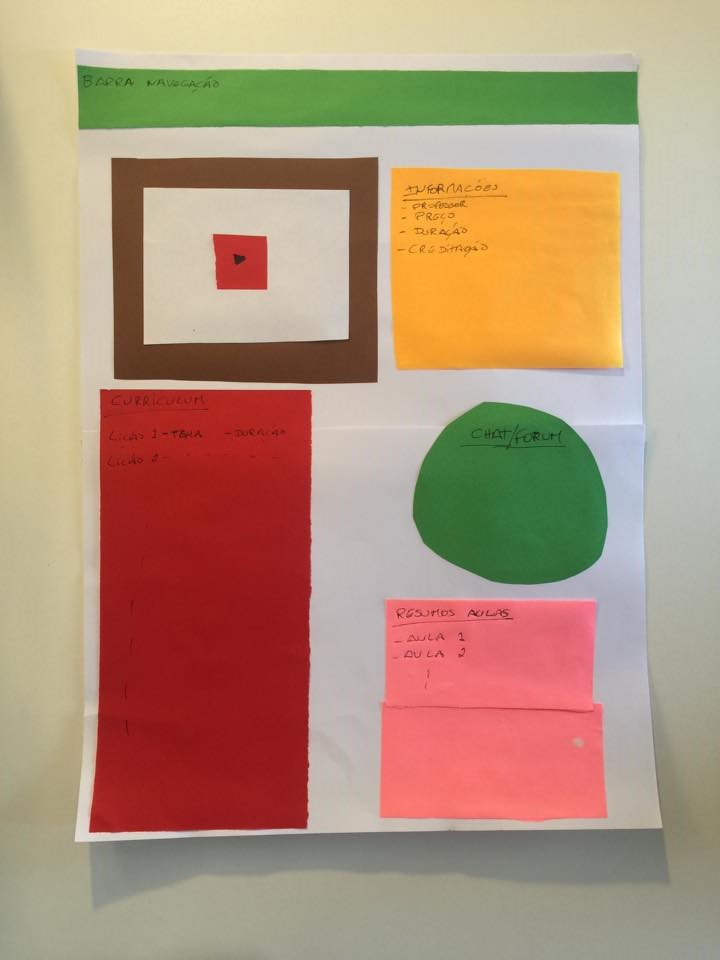 BARRA NAVEGAÇÃO
INFORMAÇÕES
- PROFESSOR
- PREÇO
- DURAÇÃO
- CREDITAÇÃO
CURRÍCULUM
LICÃO 1 - TEMA - DURAÇÃO
LICÃO 2 - - - - - -
CHAT/FORUM
RESUMOS AULAS
- AULA 1
- AULA 2